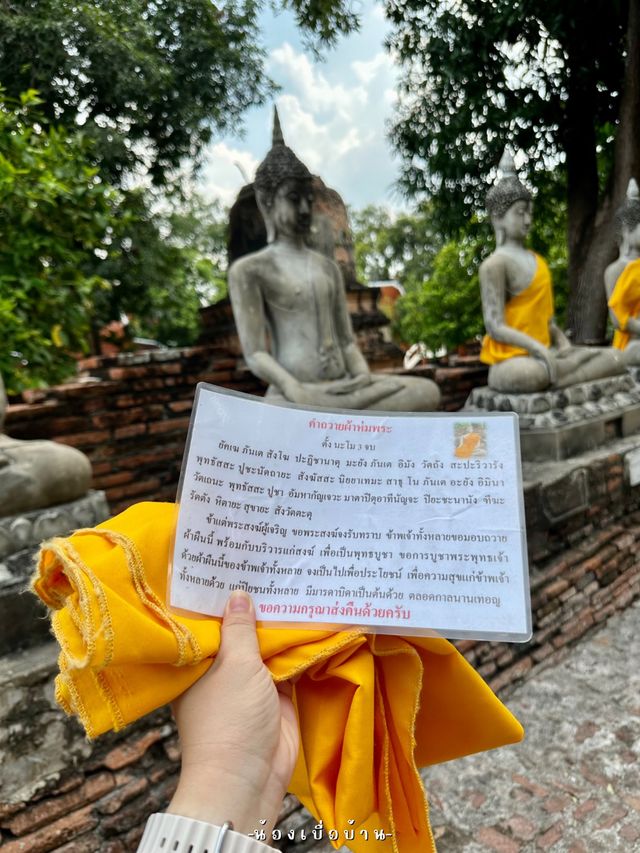 คำถวายผ้าห่มพระ
ตั้ง นะโม 3 จบ
ยัคเฆ ภันเต สังโฆ ปะฏิชานาตุ มะยัง ภันเต อิมัง วัตถัง สะปะริวารัง
พุทธัสสะ ปูชะนัตถายะ สังฆัสสะ นิยยาเทมะ สาธุ โน ภันเต อะยัง อิมินา
วัตเถนะ พุทธัสสะ ปูชา อัมหากัญเจวะ มาตาปิตุอาทีนัญจะ ปิยะชะนานัง ทีฆะ
รัตตัง หิตายะ สุขายะ สังวัตตะตุ
ข้าแต่พระสงฆ์ผู้เจริญ ขอพระสงฆ์จงรับทราบ ข้าพเจ้าทั้งหลายขอมอบถวาย
ผ้าผืนนี้ พร้อมกับบริวารแก่สงฆ์ เพื่อเป็นพุทธบูชา ขอการบูชาพระพุทธเจ้า
ด้วยผ้าผืนนี้ของข้าพเจ้าทั้งหลาย จงเป็นไปเพื่อประโยชน์ เพื่อความสุขแก่ข้าพเจ้า
ทั้งหลายด้วย แก่ปิยชนทั้งหลาย มีมารดาบิดาเป็นต้นด้วย ตลอดกาลนานเทอญ
ขอความกรุณาส่งคืนด้วยครับ
-น้องเบื่อบ้าน-